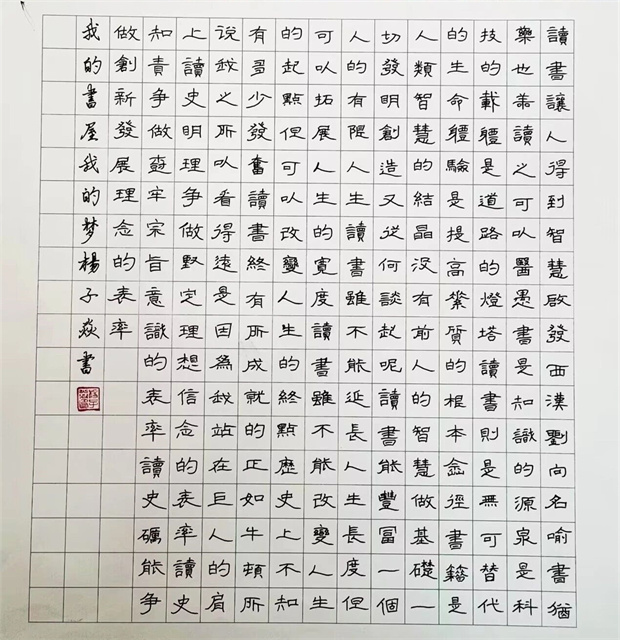 讀書讓人得到智慧啟發西漢劉向名喻書猶
藥也善讀之可以醫愚書是知識的源泉是科
技的載體是道路的燈塔讀書則是無可替代
的生命體驗是提高素質的根本途徑書籍是
人類智慧的結晶沒有前人的智慧做基礎一
切發明創造又從何談起呢讀書能豐富一個
人的有限人生讀書雖不能延長人生長度但
可以拓展人生的寬度讀書雖不能改變人生
的起點但可以改變人生的終點歷史上不知
有多少發奮讀書終有所成就的正如牛頓所
說我之所以看得遠是因為我站在巨人的肩
上讀史明理爭做堅定理想信念的表率讀史
知責爭做牢宗旨意識的表率讀史礪能爭
做創新發展理念的表率
我的書屋我的梦楊子焱書